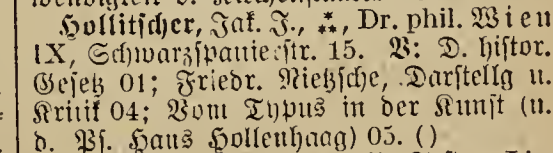 Hollitscher, Jak. J., ⁂, Dr. phil. Wien
IX, Schwarzspanierstr. 15. V: D. histor.
Gesetz 01; Friedr. Nietzsche, Darstellg u.
Kritik 04; Vom Typus in der Kunst (u.
d. Ps. Hans Hollenhaag) 05. ()